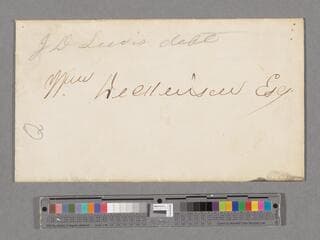 J D Lewis debt
Wm Dickinson Esq